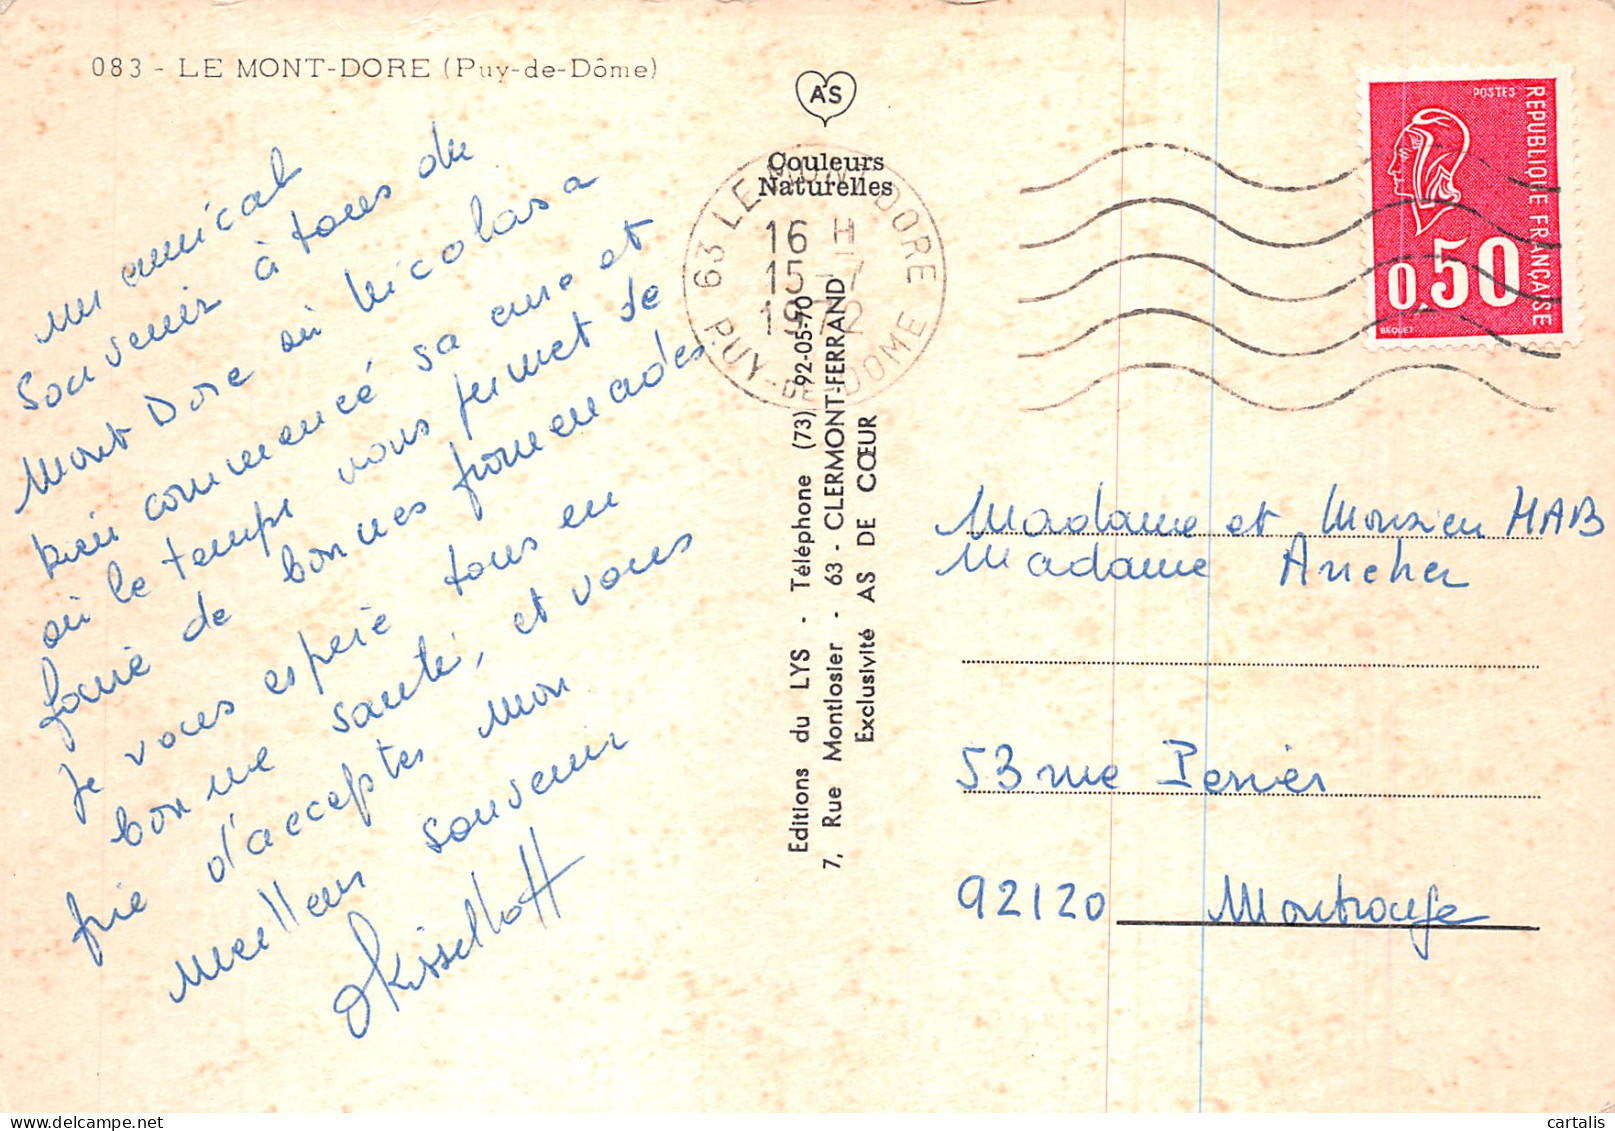 083 - LE MONT-DORE (Puy-de-Dôme)
un amical
souvenir à tous du
Mont Dore où Nicolas a
bien commencé sa cure et
où le temps nous permet de
faire de bonnes promenades
Je vous espère tous en
bonne santé, et vous
prie d'accepter mon
meilleur souvenir
Kisselhoff
AS
Couleurs
Naturelles
63 LE MONT-DORE
16 H
15-7
1972
PUY-DE-DOME
Editions du LYS - Téléphone (73) 92-05-70
7, Rue Montlosier - 63 - CLERMONT-FERRAND
Exclusivité AS DE CŒUR
POSTES
REPUBLIQUE FRANÇAISE
0,50
BEQUET
Madame et Monsieur HAB
Madame Ancher
53 rue Perier
92120 Montrouge
cartalis